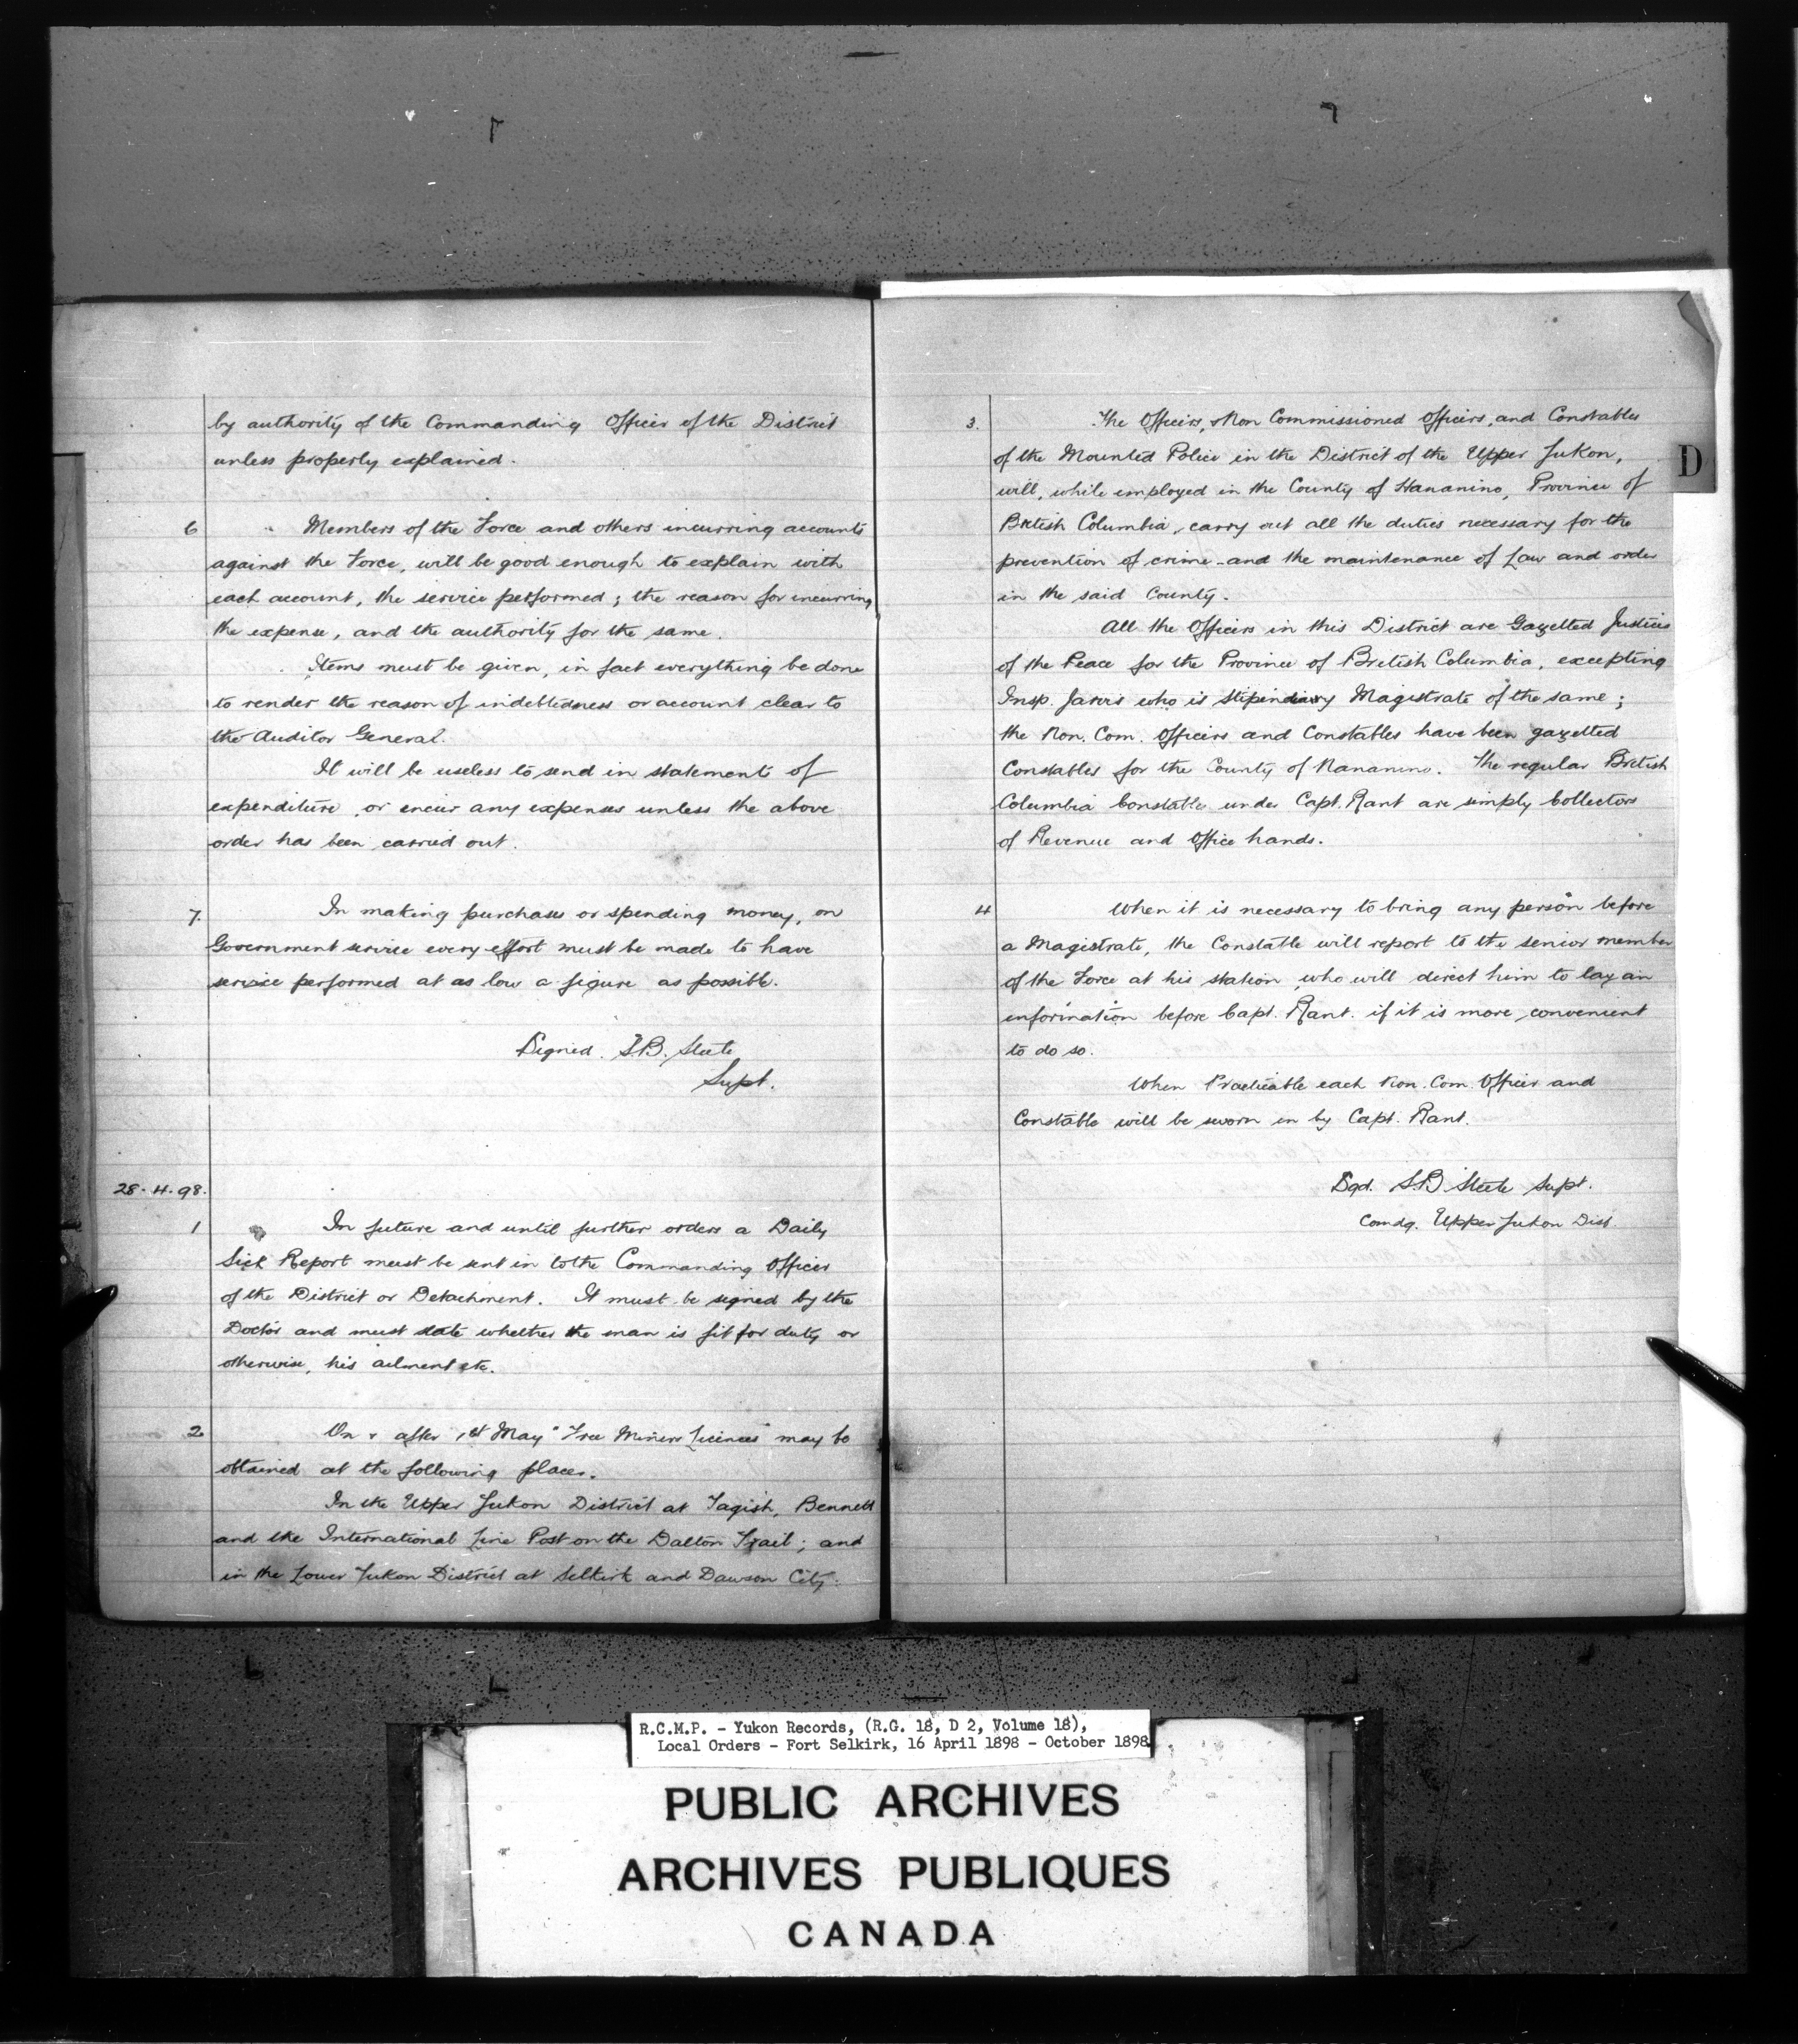 by authority of the Commanding Officer of the District
unless properly explained.
6 Members of the Force and others incurring accounts
against the Force, will be good enough to explain with
each account, the service performed; the reason for incurring
the expense, and the authority for the same.
Items must be given, in fact everything be done
to render the reason of indebtedness or account clear to
the Auditor General.
It will be useless to send in statements of
expenditure, or incur any expenses unless the above
order has been carried out.
7. In making purchases or spending money, on
Government service every effort must be made to have
service performed at as low a figure as possible.
Signed. S.B. Steele
Supt.
28.4.98.
1 In future and until further orders a Daily
Sick Report must be sent in to the Commanding Officer
of the District or Detachment. It must be signed by the
Doctor and must state whether the man is fit for duty or
otherwise, his ailment etc.
2 On & after 1st May "Free Miners Licences" may be
obtained at the following places.
In the Upper Yukon District at Tagish, Bennett
and the International Line Post on the Dalton Trail; and
in the Lower Yukon District at Selkirk and Dawson City.
3. The Officers, Non Commissioned Officers, and Constables
of the Mounted Police in the District of the Upper Yukon,
will, while employed in the County of Nananino, Province of
British Columbia, carry out all the duties necessary for the
prevention of crime and the maintenance of Law and order
in the said County.
All the Officers in this District are Gazetted Justices
of the Peace for the Province of British Columbia, excepting
Insp. Jarvis who is Stipendiary Magistrate of the same;
the Non. Com. Officers and Constables have been gazetted
Constables for the County of Nananino. The regular British
Columbia Constables under Capt. Rant are simply Collectors
of Revenue and Office hands.
4 When it is necessary to bring any person before
a Magistrate, the Constable will report to the senior member
of the Force at his station, who will direct him to lay an
information before Capt. Rant. if it is more convenient
to do so.
When Practicable each Non. Com. Officer and
Constable will be sworn in by Capt. Rant.
Sgd. S.B. Steele Supt.
Comdg. Upper Yukon Dist.
D
R.C.M.P. - Yukon Records, (R.G. 18, D 2, Volume 18),
Local Orders - Fort Selkirk, 16 April 1898 - October 1898.
PUBLIC ARCHIVES
ARCHIVES PUBLIQUES
CANADA